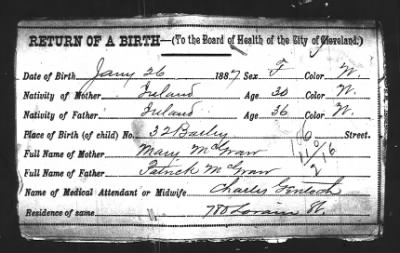 RETURN OF A BIRTH—(To the Board of Health of the City of Cleveland.)
Date of Birth Jany 26 1887 Sex F Color W.
Nativity of Mother Ireland Age 30 Color W.
Nativity of Father Ireland Age 36 Color W.
Place of Birth (of child) No. 32 Bailey Street.
Full Name of Mother Mary McGraw
Full Name of Father Patrick McGraw
Name of Medical Attendant or Midwife Charles
Residence of same 780 Lorain St.